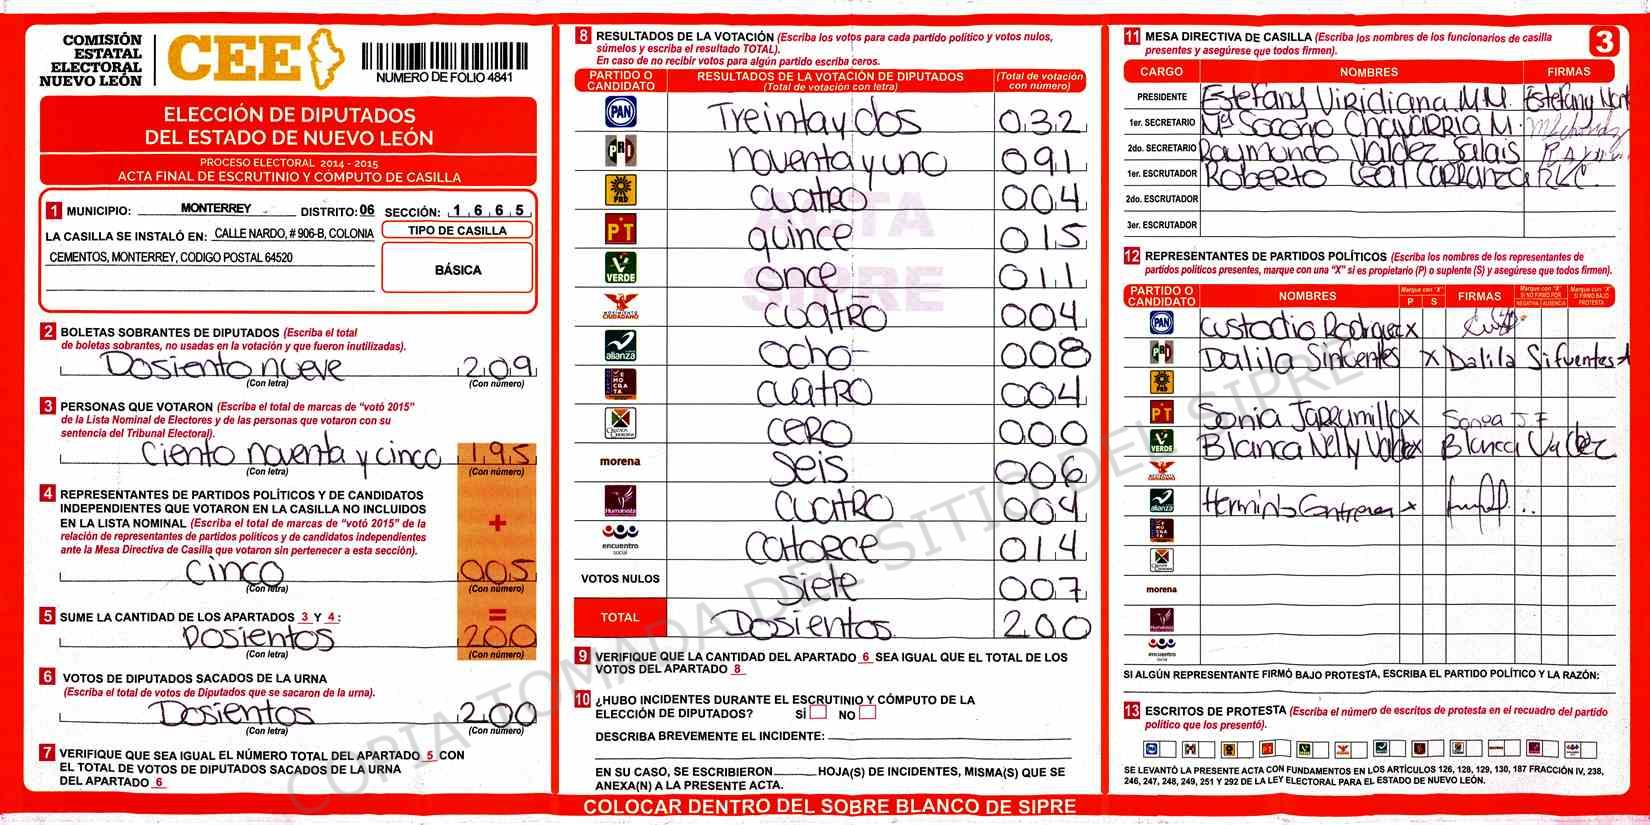 COMISIÓN
ESTATAL
ELECTORAL
NUEVO LEÓN
CEE
NUMERO DE FOLIO 4841
ELECCIÓN DE DIPUTADOS
DEL ESTADO DE NUEVO LEÓN
PROCESO ELECTORAL 2014 - 2015
ACTA FINAL DE ESCRUTINIO Y CÓMPUTO DE CASILLA
1 MUNICIPIO: MONTERREY DISTRITO: 06 SECCIÓN: 1 6 6 5
LA CASILLA SE INSTALÓ EN: CALLE NARDO, # 906-B, COLONIA
CEMENTOS, MONTERREY, CODIGO POSTAL 64520
TIPO DE CASILLA
BÁSICA
2 BOLETAS SOBRANTES DE DIPUTADOS (Escriba el total
de boletas sobrantes, no usadas en la votación y que fueron inutilizadas).
Dosiento nueve 209
(Con letra) (Con número)
3 PERSONAS QUE VOTARON (Escriba el total de marcas de "votó 2015"
de la Lista Nominal de Electores y de las personas que votaron con su
sentencia del Tribunal Electoral).
Ciento noventa y cinco 195
(Con letra) (Con número)
4 REPRESENTANTES DE PARTIDOS POLÍTICOS Y DE CANDIDATOS
INDEPENDIENTES QUE VOTARON EN LA CASILLA NO INCLUIDOS
EN LA LISTA NOMINAL (Escriba el total de marcas de "votó 2015" de la
relación de representantes de partidos políticos y de candidatos independientes
ante la Mesa Directiva de Casilla que votaron sin pertenecer a esta sección).
+
cinco 005
(Con letra) (Con número)
=
5 SUME LA CANTIDAD DE LOS APARTADOS 3 Y 4:
Dosientos 200
(Con letra) (Con número)
6 VOTOS DE DIPUTADOS SACADOS DE LA URNA
(Escriba el total de votos de Diputados que se sacaron de la urna).
Dosientos 200
(Con letra) (Con número)
7 VERIFIQUE QUE SEA IGUAL EL NÚMERO TOTAL DEL APARTADO 5 CON
EL TOTAL DE VOTOS DE DIPUTADOS SACADOS DE LA URNA
DEL APARTADO 6
8 RESULTADOS DE LA VOTACIÓN (Escriba los votos para cada partido político y votos nulos,
súmelos y escriba el resultado TOTAL).
En caso de no recibir votos para algún partido escriba ceros.
PARTIDO O CANDIDATO RESULTADOS DE LA VOTACIÓN DE DIPUTADOS (Total de votación con letra) (Total de votación con número)
PAN Treinta y dos 032
PRI noventa y uno 091
PRD cuatro 004
PT quince 015
VERDE once 011
MOVIMIENTO CIUDADANO cuatro 004
alianza ocho- 008
DEMOCRATA cuatro 004
CRUZADA CIUDADANA cero 000
morena seis 006
Humanista cuatro 004
encuentro social catorce 014
VOTOS NULOS siete 007
TOTAL Dosientos 200
ACTA
SIPRE
9 VERIFIQUE QUE LA CANTIDAD DEL APARTADO 6 SEA IGUAL QUE EL TOTAL DE LOS
VOTOS DEL APARTADO 8
10 ¿HUBO INCIDENTES DURANTE EL ESCRUTINIO Y CÓMPUTO DE LA
ELECCIÓN DE DIPUTADOS? SÍ NO
DESCRIBA BREVEMENTE EL INCIDENTE:
EN SU CASO, SE ESCRIBIERON HOJA(S) DE INCIDENTES, MISMA(S) QUE SE
ANEXA(N) A LA PRESENTE ACTA.
COLOCAR DENTRO DEL SOBRE BLANCO DE SIPRE
11 MESA DIRECTIVA DE CASILLA (Escriba los nombres de los funcionarios de casilla
presentes y asegúrese que todos firmen).
3
CARGO NOMBRES FIRMAS
PRESIDENTE Estefany Viridiana M M. Estefany
1er. SECRETARIO Mª Socorro Chavarria M.
2do. SECRETARIO Raymundo Valdez Salais
1er. ESCRUTADOR Roberto Leal Carranza RLC.
2do. ESCRUTADOR
3er. ESCRUTADOR
12 REPRESENTANTES DE PARTIDOS POLÍTICOS (Escriba los nombres de los representantes de
partidos políticos presentes, marque con una "X" si es propietario (P) o suplente (S) y asegúrese que todos firmen).
PARTIDO O CANDIDATO NOMBRES Marque con "X" P S FIRMAS Marque con "X" SI NO FIRMÓ POR NEGATIVA AUSENCIA Marque con "X" SI FIRMÓ BAJO PROTESTA
PAN Custodio Rodriguez x
PRI Dalila Sifuentes X Dalila Sifuentes
PRD
PT Sonia Jarramillo x
VERDE Blanca Nelly Valdez x Blanca Valdez
MOVIMIENTO CIUDADANO
alianza Herminio Contreras x
morena
Humanista
encuentro social
SI ALGÚN REPRESENTANTE FIRMÓ BAJO PROTESTA, ESCRIBA EL PARTIDO POLÍTICO Y LA RAZÓN:
13 ESCRITOS DE PROTESTA (Escriba el número de escritos de protesta en el recuadro del partido
político que los presentó).
SE LEVANTÓ LA PRESENTE ACTA CON FUNDAMENTOS EN LOS ARTÍCULOS 126, 128, 129, 130, 187 FRACCIÓN IV, 238,
246, 247, 248, 249, 251 Y 292 DE LA LEY ELECTORAL PARA EL ESTADO DE NUEVO LEÓN.
COPIA TOMADA DEL SITIO DEL SIPRE